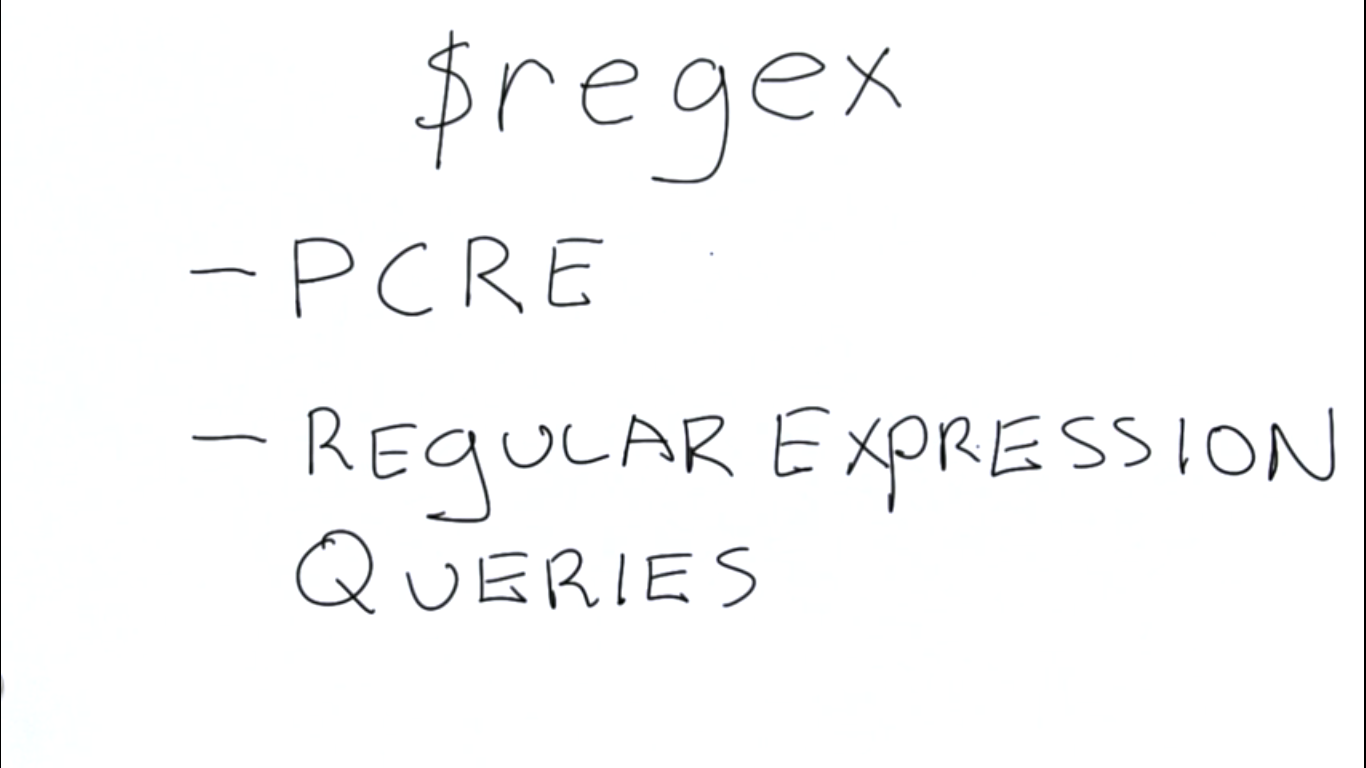 $regex
- PCRE
- REgULAR EXPRESSION
QUERIES